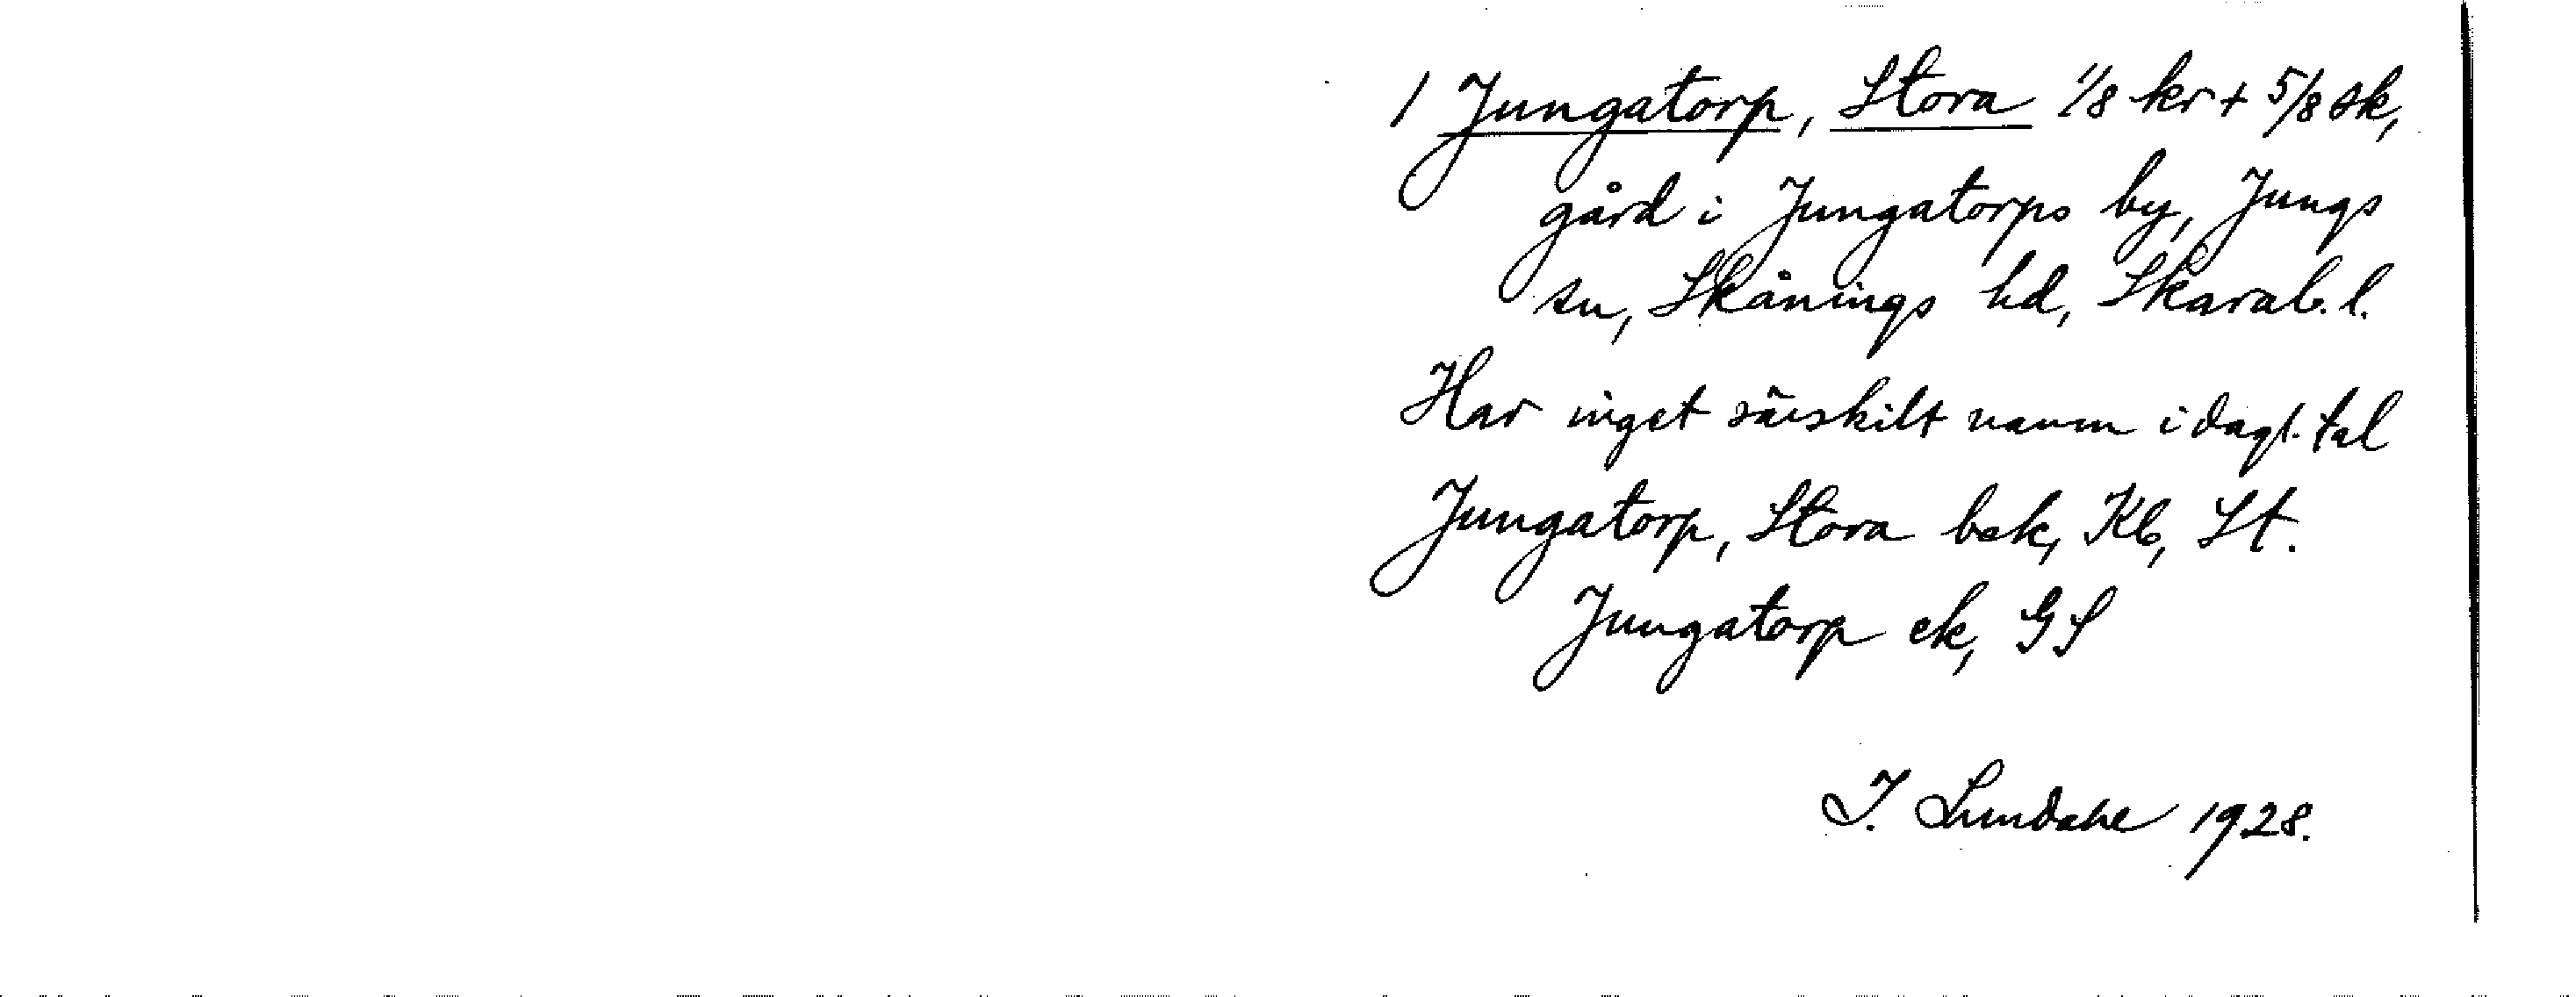 1 Jungatorp, Stora 1/8 kr + 5/8 sk,
gård i Jungatorps by, Jungs
sn, Skånings hd, Skarab. l.
Har inget särskilt namn i dagl. tal
Jungatorp, Stora bek, Kb, St.
Jungatorp ek, GS
I. Lundahl 1928.